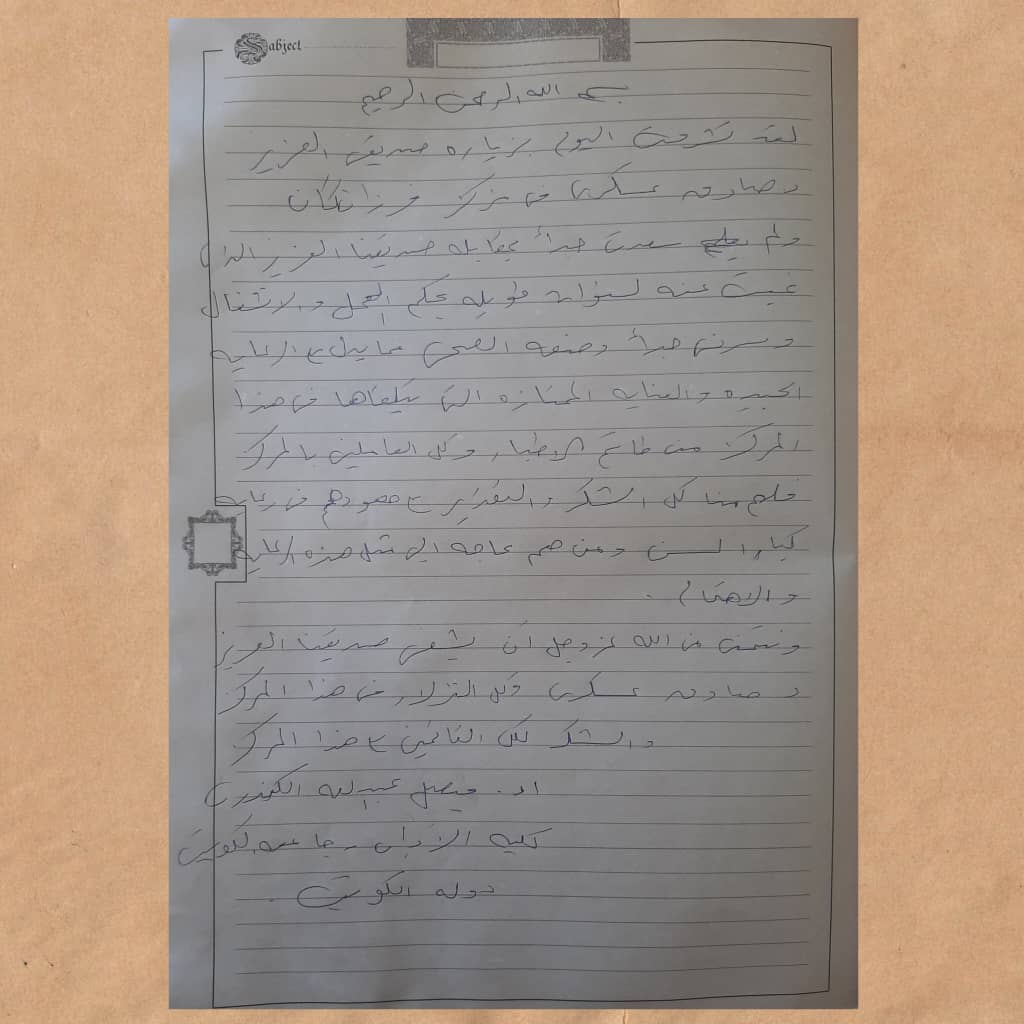 Sabject
بسم الله الرحمن الرحيم
لقد تشرفت اليوم بزياره صديقي العزيز
د صادق عسكري في مركز فرزانكان
ولم سعدت جداً بمقابلة صديقنا العزيز الذي
غبت عنه لسنوات طويله بحكم العمل والاشغال
وسرني جداً وضعه الصحي مما يدل ع الرعايه
الكبيره والعنايه الممتازه التي يتلقاها في هذا
المركز من طاقم الاطباء وكل العاملين بالمركز
فلهم منا كل الشكر والتقدير ع جهودهم في رعايه
كبار السن ومن هم بحاجه الى مثل هذه الرعايه
والاهتمام .
ونتمنى من الله عز وجل أن يشفي صديقنا العزيز
د صادق عسكري وكل النزلاء في هذا المركز
والشكر لكل القائمين ع هذا المركز
اد. فيصل عبدالله الكندري
كليه الآداب - جامعه الكويت
دوله الكويت .